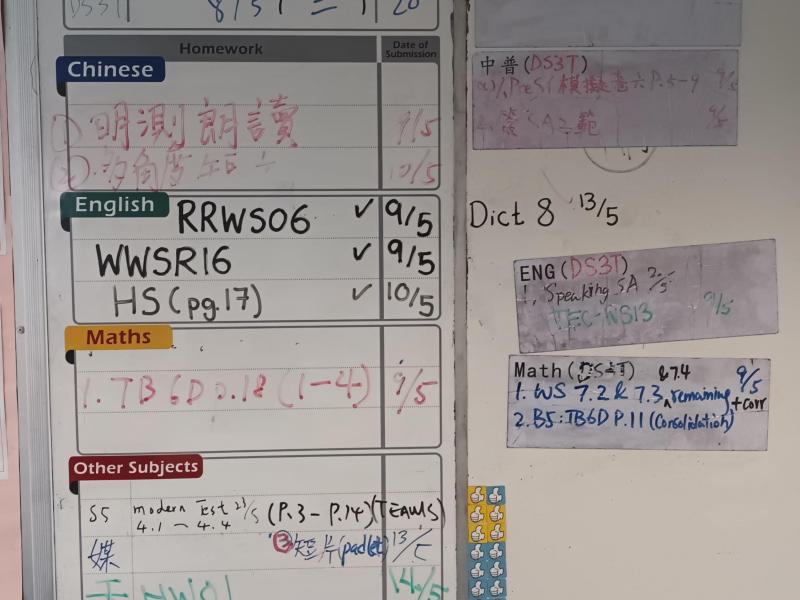 DS3T
Homework
Date of Submission
Chinese
① 明測 朗讀 9/5
② 多角度 10/5
English
RRWS06 ✓ 9/5
WWSR16 ✓ 9/5
HS (pg.17) ✓ 10/5
Maths
1. TB 6D p.18 (1-4) 9/5
Other Subjects
S5 modern Test 23/5 (P.3 - P.14) (TEAMS)
4.1 ~ 4.4
媒 ③ 短片 (padlet) 13/5
HW01 14/5
中普 (DS3T)
模擬卷六 P.5-9 9/5
範 9/5
Dict 8 13/5
ENG (DS3T)
1. Speaking SA 2/5
TEC-WS13 9/5
Math (DS3T) & 7.4 9/5
1. WS 7.2 & 7.3 ^ remaining + corr
2. B5: TB6D P.11 (Consolidation)